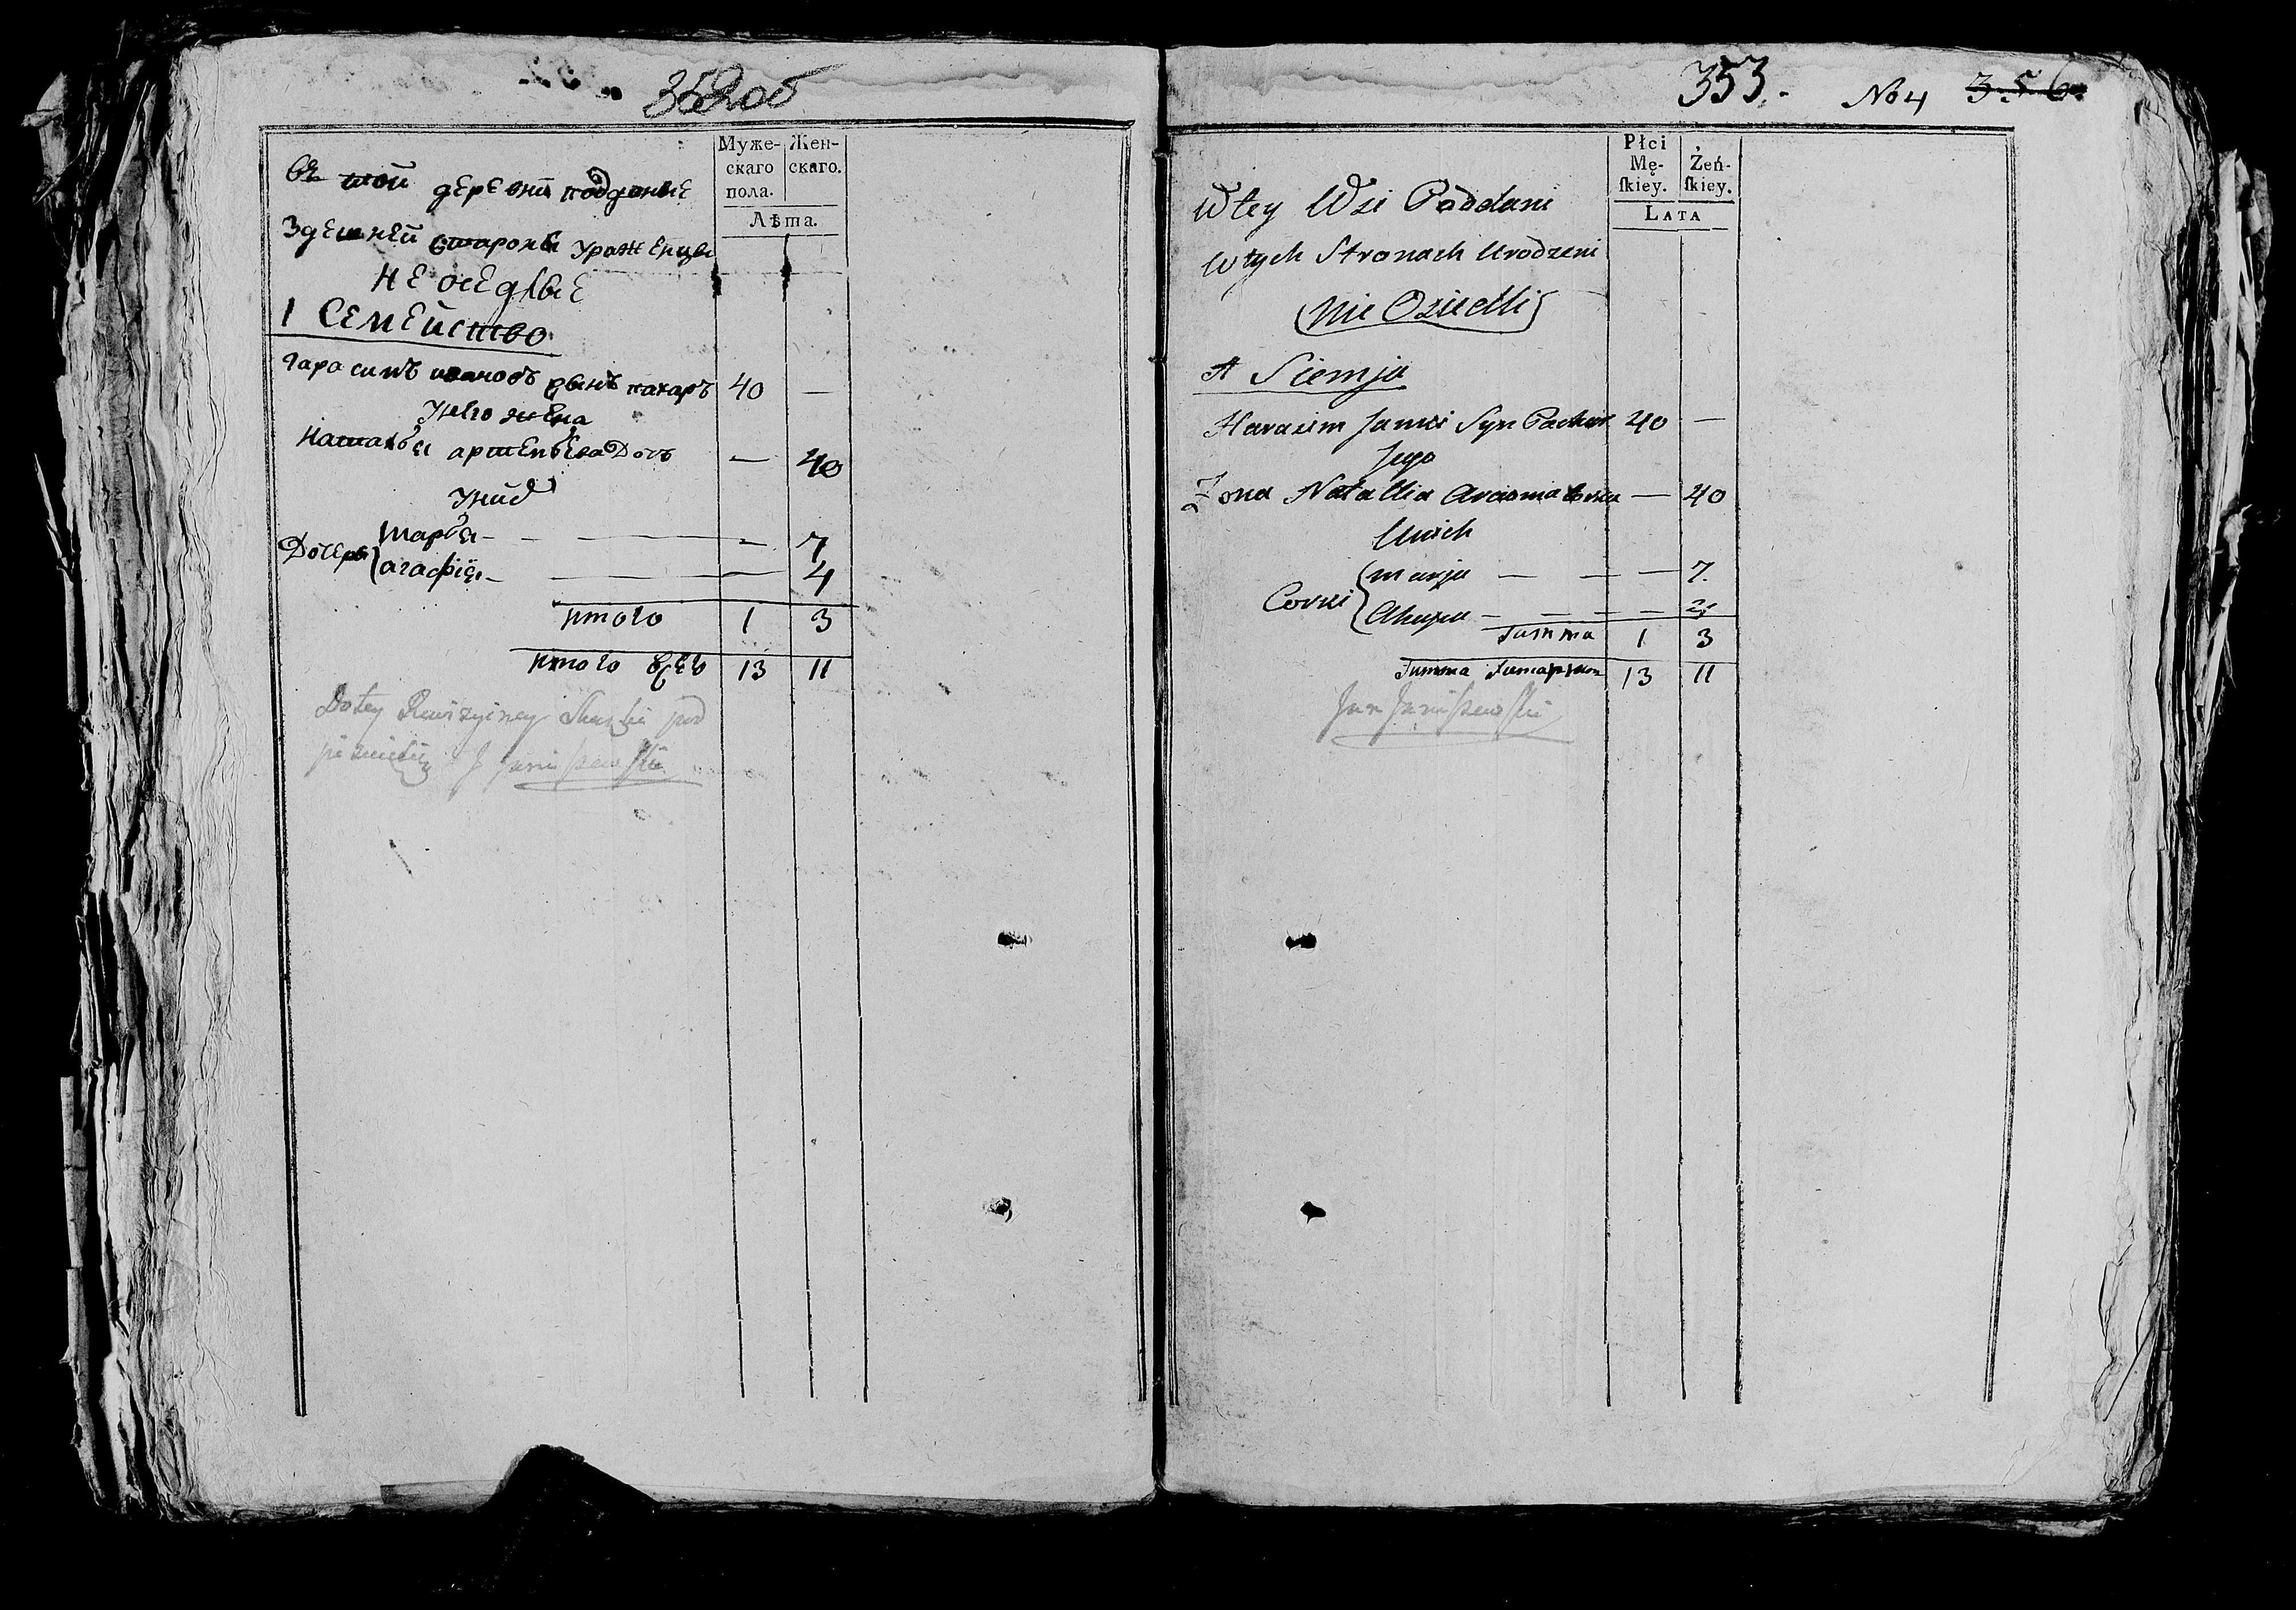 352 об
Муже- Жен-
скаго скаго.
пола.
Лѣта.
въ той деревни подданые
Здешней староны Уроженцы
не оседлые
1 Семейство
гарасимъ ивановъ сынъ пахаръ 40 —
Унего жена
Наталья артемьева Доч — 40
Уних
Дочеры { марья — — — 7
агафія — — — 4
итого 1 3
итого всего 13 11
Do tey Rewizyiney Skazki pod
J Janiszewski
353. No 4 356
Płci
Mę- Żeń-
ſkiey. ſkiey.
LATA
W tey Wsi Poddani
w tych Stronach Urodzeni
(Nie Osiedli)
A Siemja
Harasim Janki Syn Pachar 40 —
Jego
Zona Natallia — 40
Unich
Corki { marja — — — 7.
Ahapia — — —
Summa 1 3
Summa 13 11
Jan Janiszewski